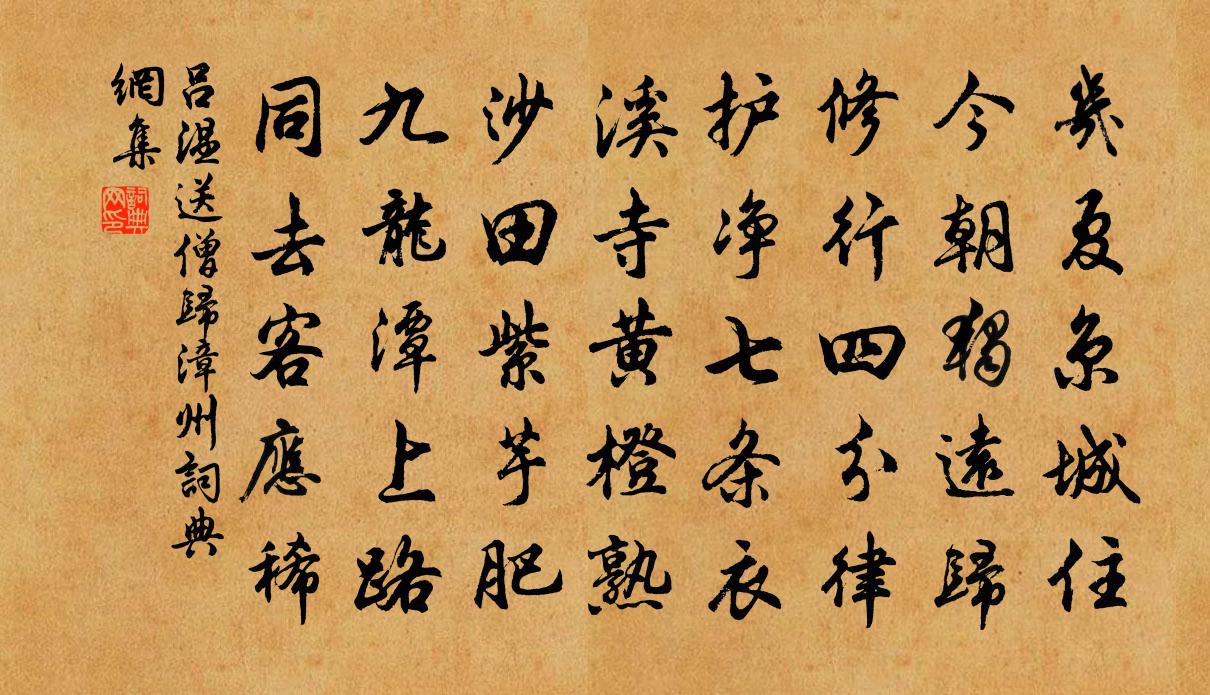 幾夏京城住
今朝獨遠歸
修行四分律
护净七条衣
溪寺黄橙熟
沙田紫芋肥
九龍潭上路
同去客應稀
吕温送僧歸漳州詞典
網集
詞典
网印